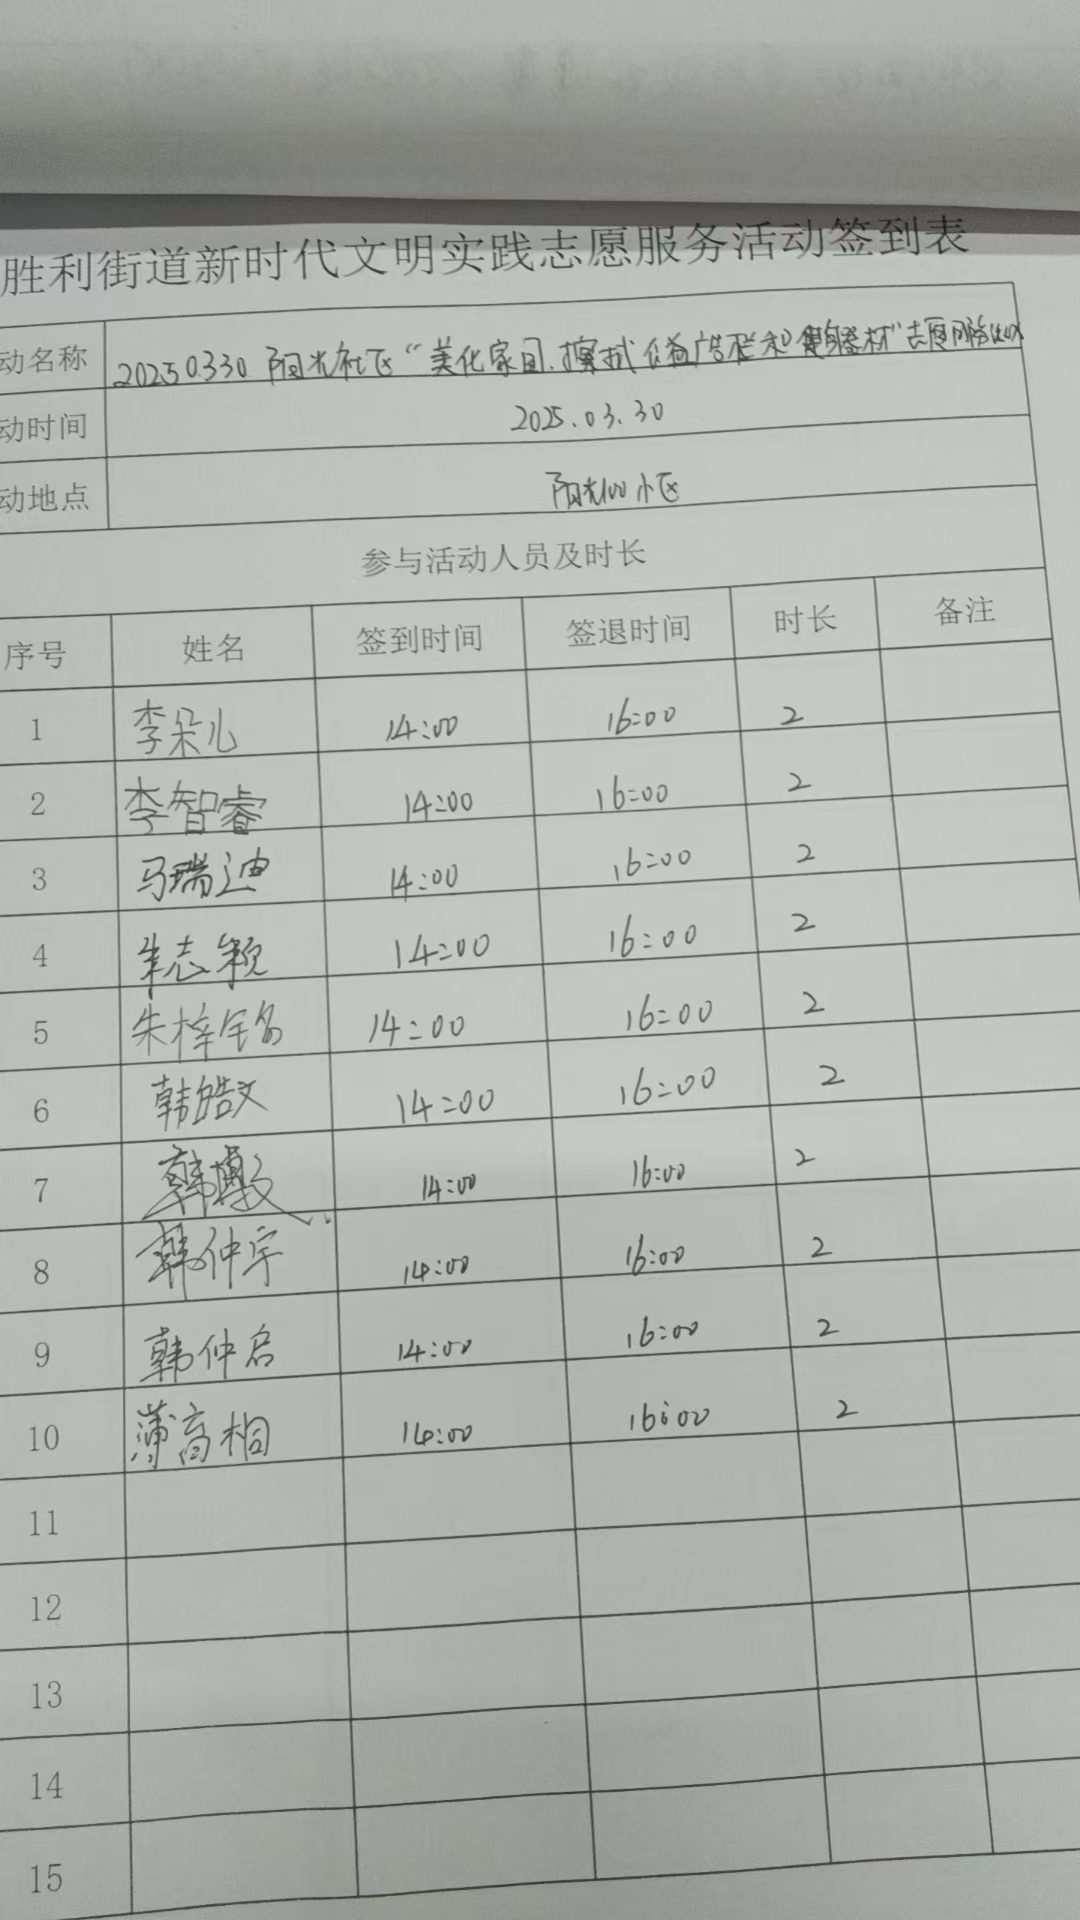 胜利街道新时代文明实践志愿服务活动签到表
动名称 20250330 阳光社区“美化家园.擦拭公益广告栏和健身器材”志愿服务活动
动时间 2025.03.30
动地点 阳光100小区
参与活动人员及时长
序号 姓名 签到时间 签退时间 时长 备注
1 李朵儿 14:00 16:00 2
2 李智睿 14:00 16:00 2
3 马瑞迪 14:00 16:00 2
4 朱志颖 14:00 16:00 2
5 朱梓铭 14:00 16:00 2
6 韩皓文 14:00 16:00 2
7 韩博 14:00 16:00 2
8 韩仲宇 14:00 16:00 2
9 韩仲启 14:00 16:00 2
10 蒲高桐 14:00 16:00 2
11
12
13
14
15